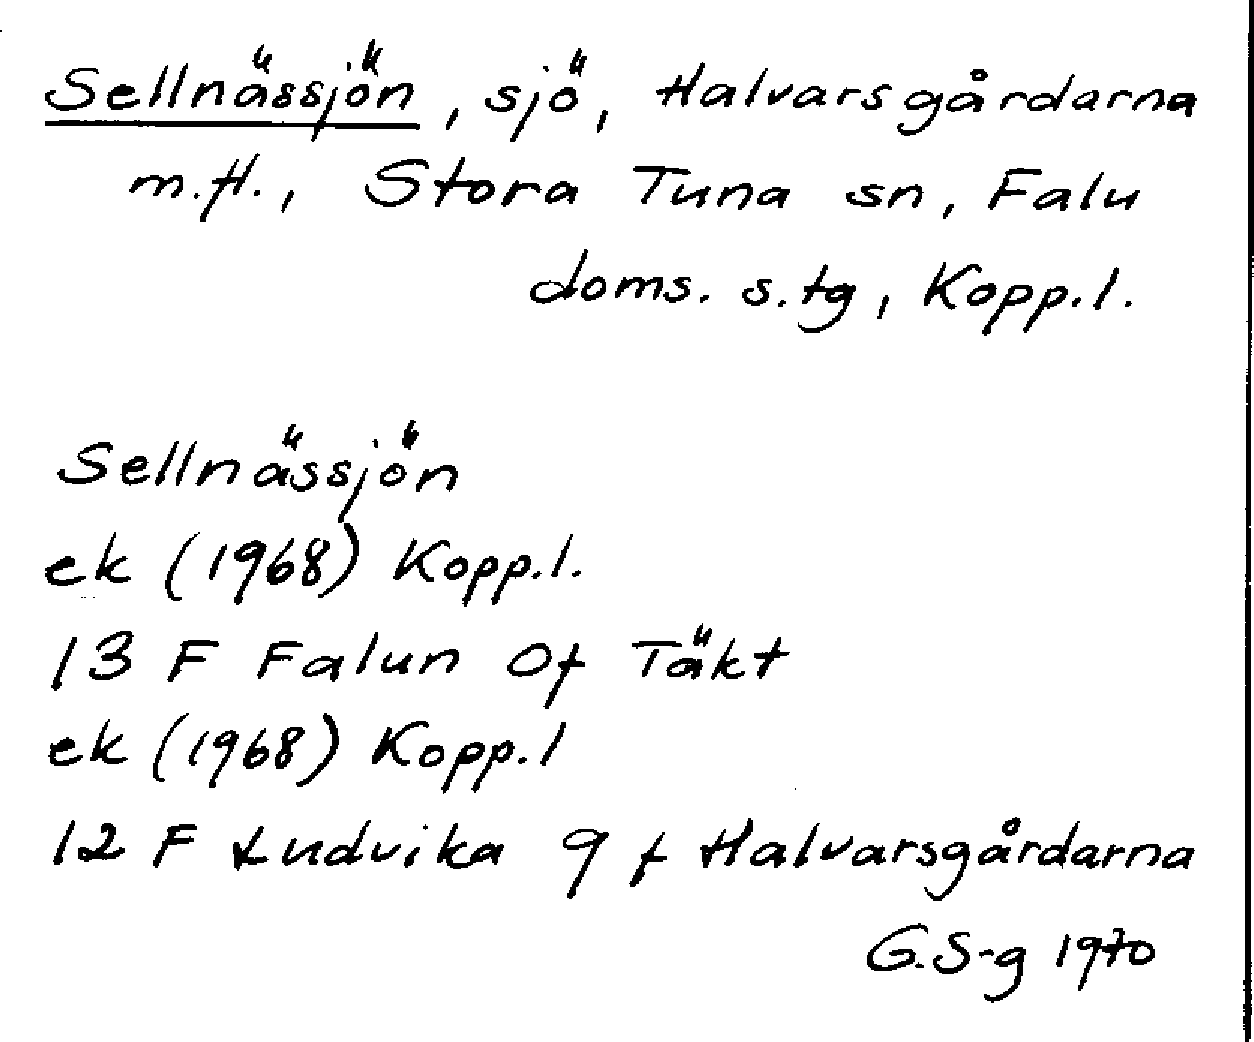 Sellnässjön, sjö, Halvarsgårdarna
m.fl., Stora Tuna sn, Falu
doms. s.tg, Kopp.l.
Sellnässjön
ek (1968) Kopp.l.
13 F Falun 0f Täkt
ek (1968) Kopp.l
12 F Ludvika 9f Halvarsgårdarna
G.S-g 1970